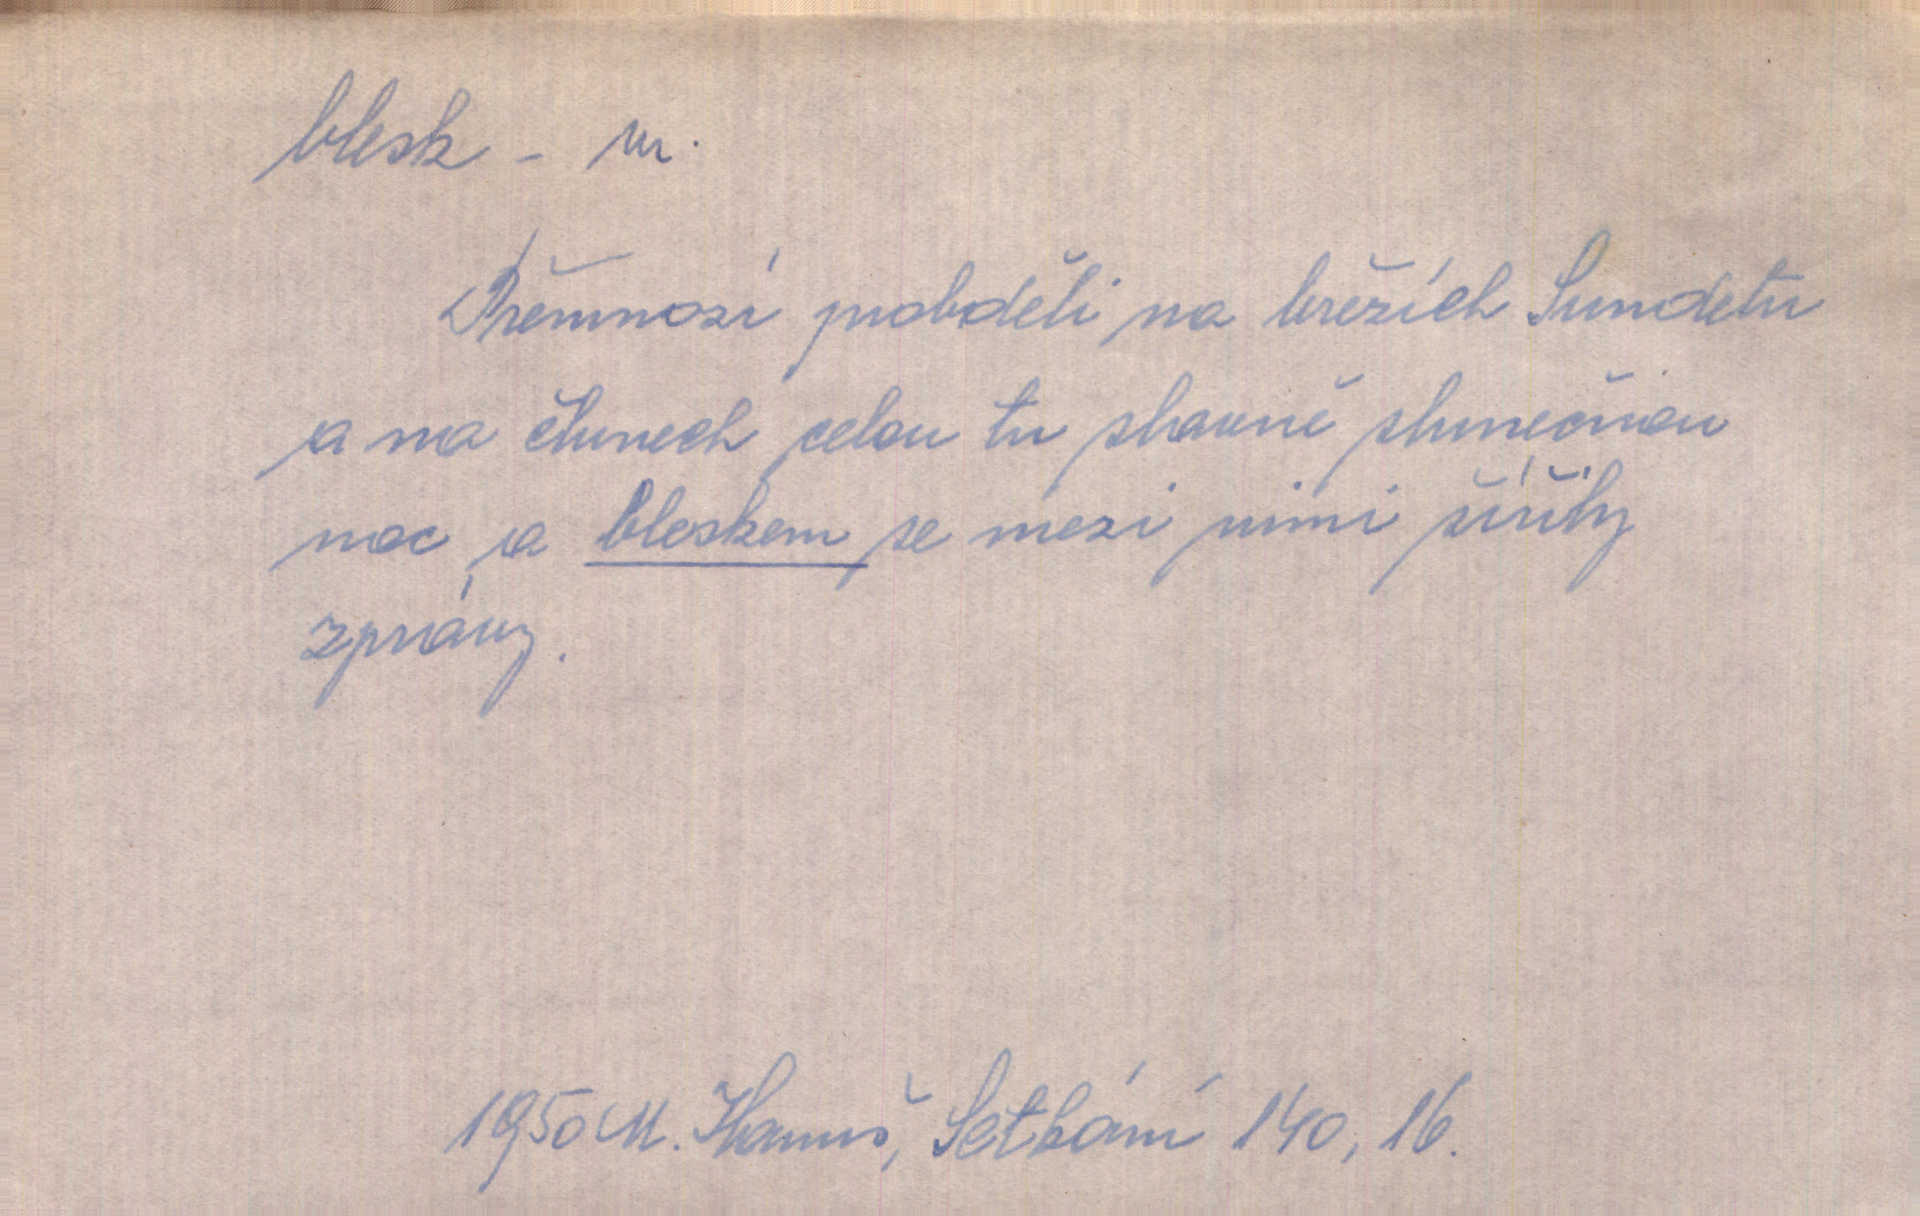 blesk - m.
Přemnozí probděli na březích Sundetu
a na člunech celou tu slavně slunečnou
noc a bleskem se mezi nimi šířily
zprávy.
1950 M. Hanuš, Setkání 140, 16.